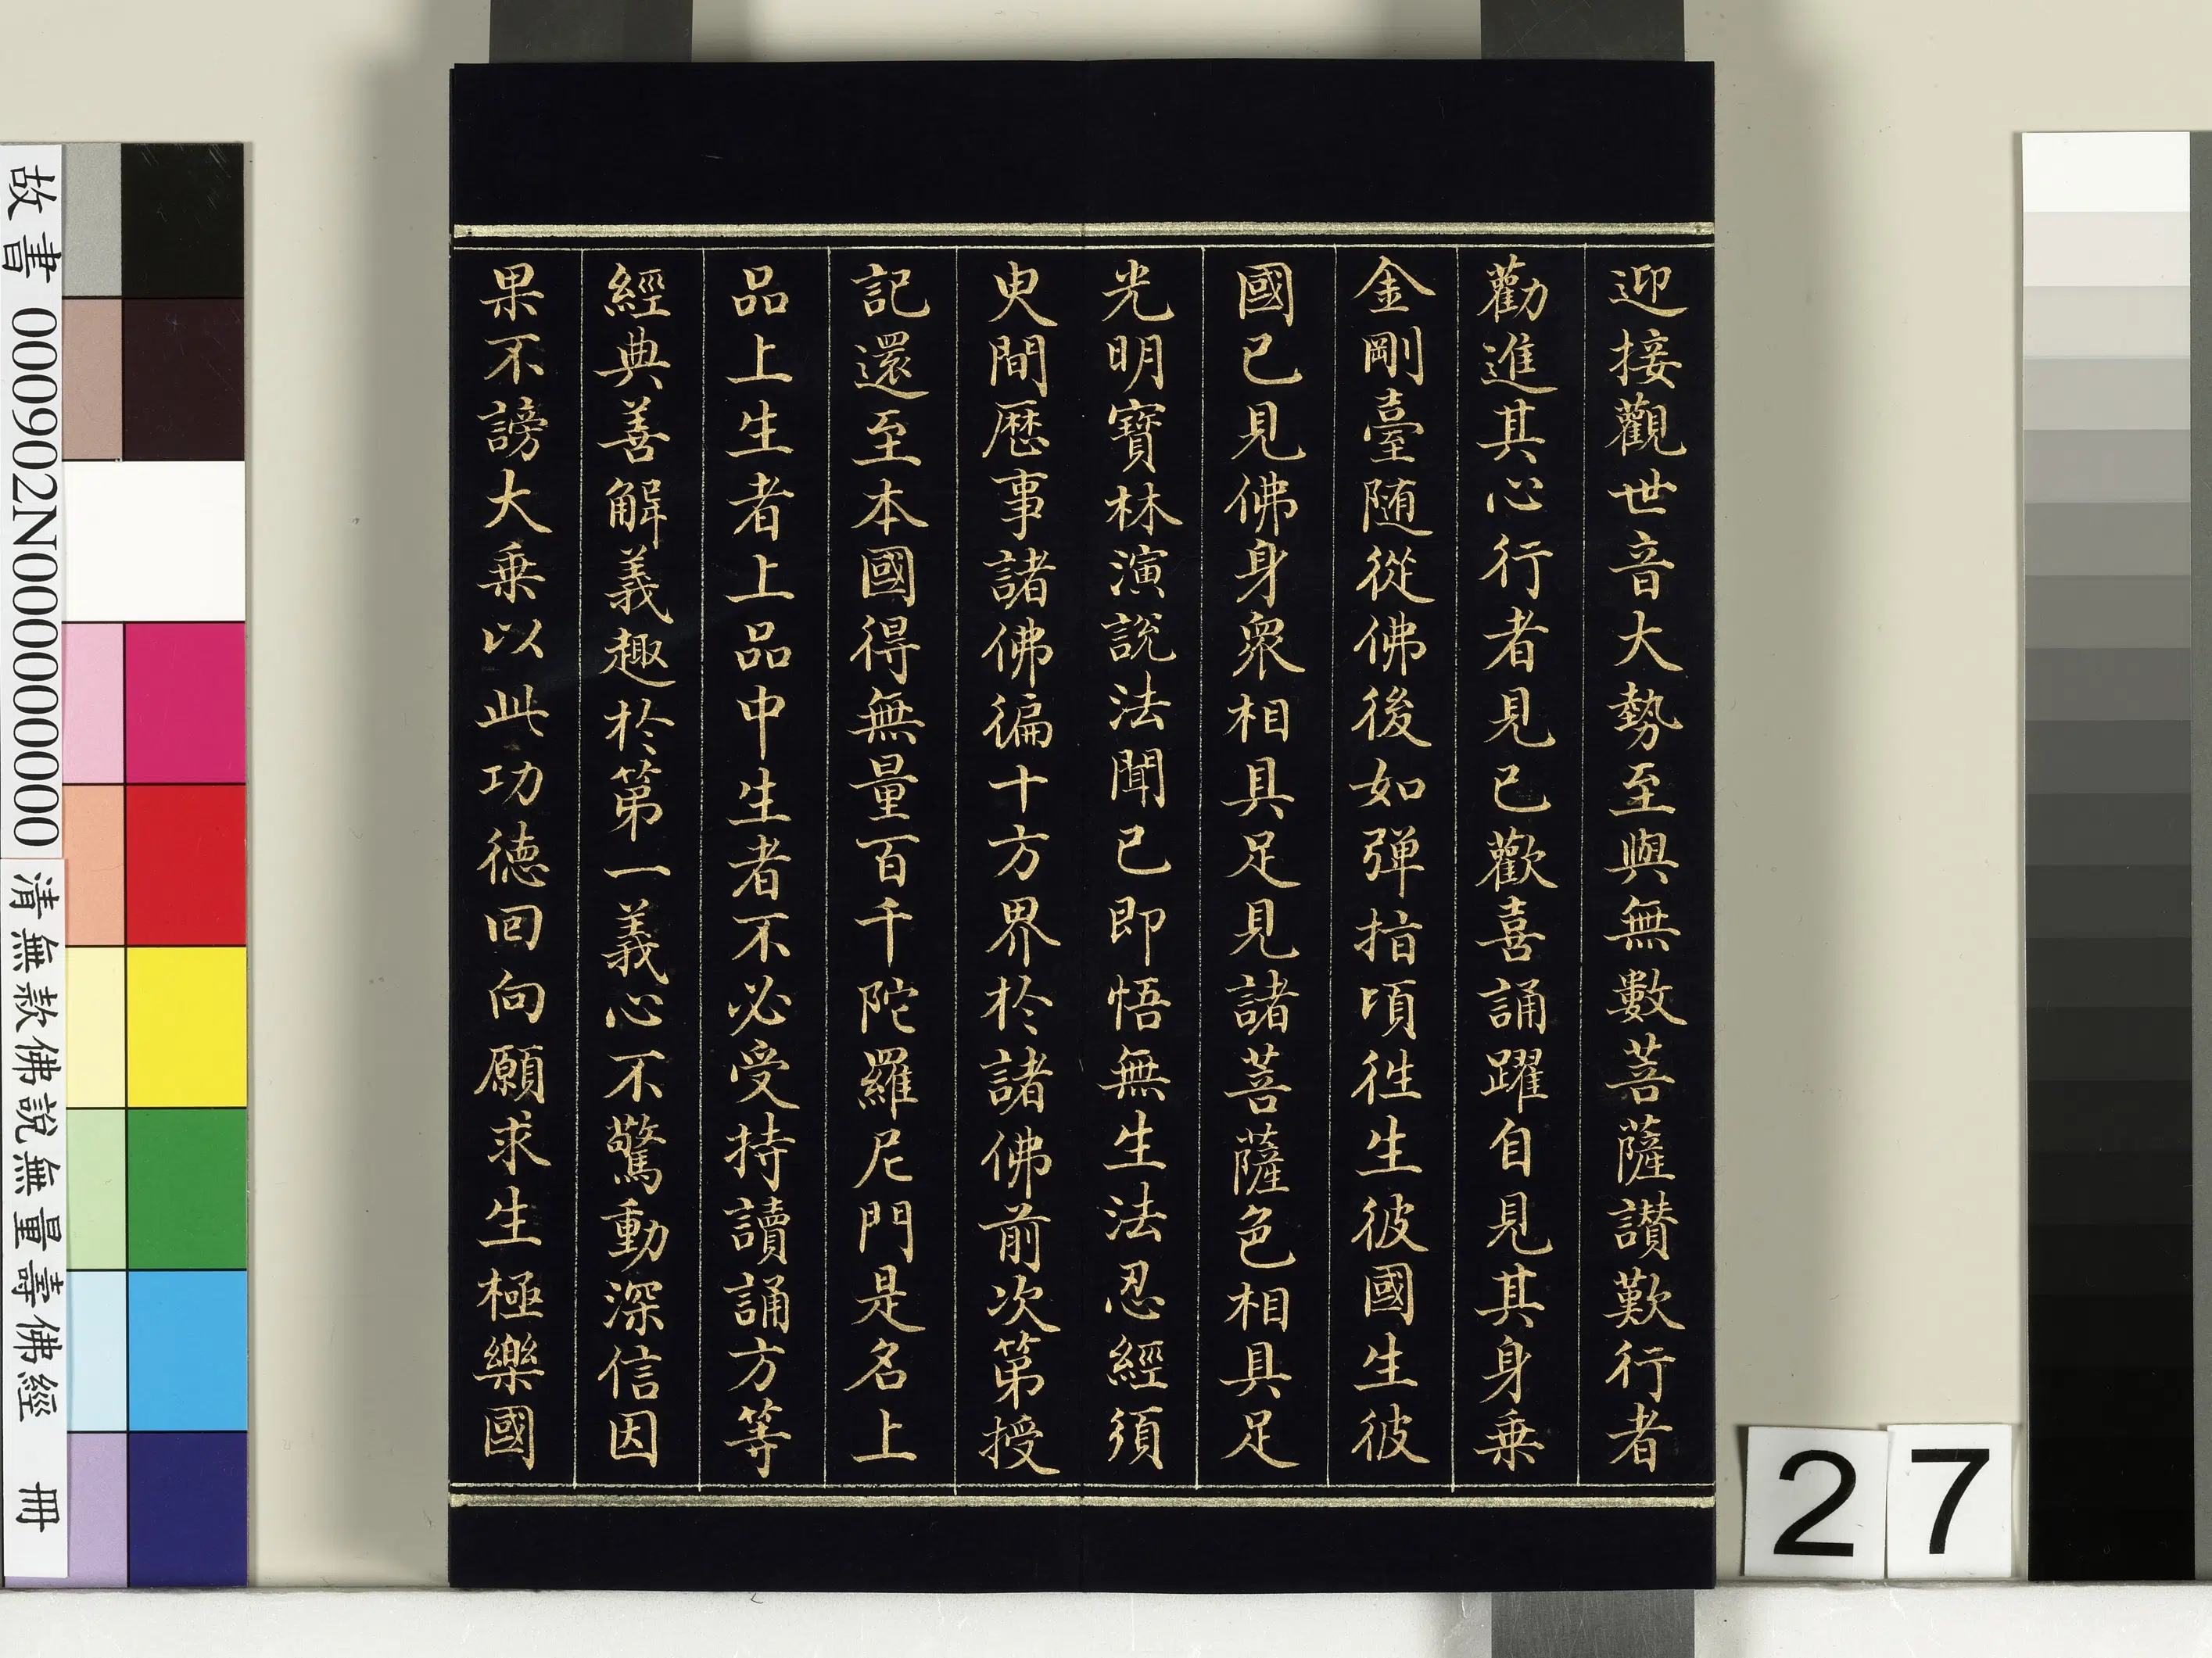 迎接觀世音大勢至與無數菩薩讃歎行者
勸進其心行者見已歡喜誦躍自見其身乗
金剛臺随從佛後如弾指頃徃生彼國生彼
國已見佛身衆相具足見諸菩薩色相具足
光明寶林演説法聞已即悟無生法忍經須
㬰間歷事諸佛徧十方界於諸佛前次第授
記還至本國得無量百千陀羅尼門是名上
品上生者上品中生者不必受持讀誦方等
經典善解義趣於第一義心不驚動深信因
果不謗大乗以此功德回向願求生極樂國
故書 000902N000000000 清無款佛說無量壽佛經 冊
27